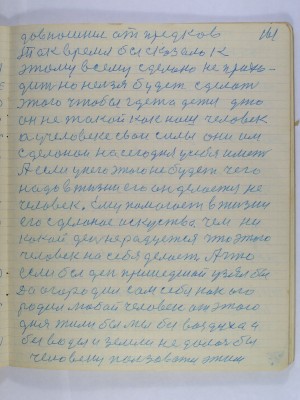 161
до вполнил от предков
Так время бы сказало к
этому всему сделано не прихо-
дит но нельзя будет сделат
этого чтобы где та дети его
он не такой как наш человек
а у человека свои силы они им
сделаной на сегодня у себя имет
А если у него этого не будет чего
надо в тизни его он делается не
человек. Ему помогает в тизни
его сделаное искуства, чем ни
какой дег не радуется то этого
человек на себя делает А что
если бы дег пришедшой узял бы
да огородил сам себя как ого
родил любой человек от этого
дня тили бы мы бы воздуха а
бы воды и земли не дал бы
человеку ползоватся этим